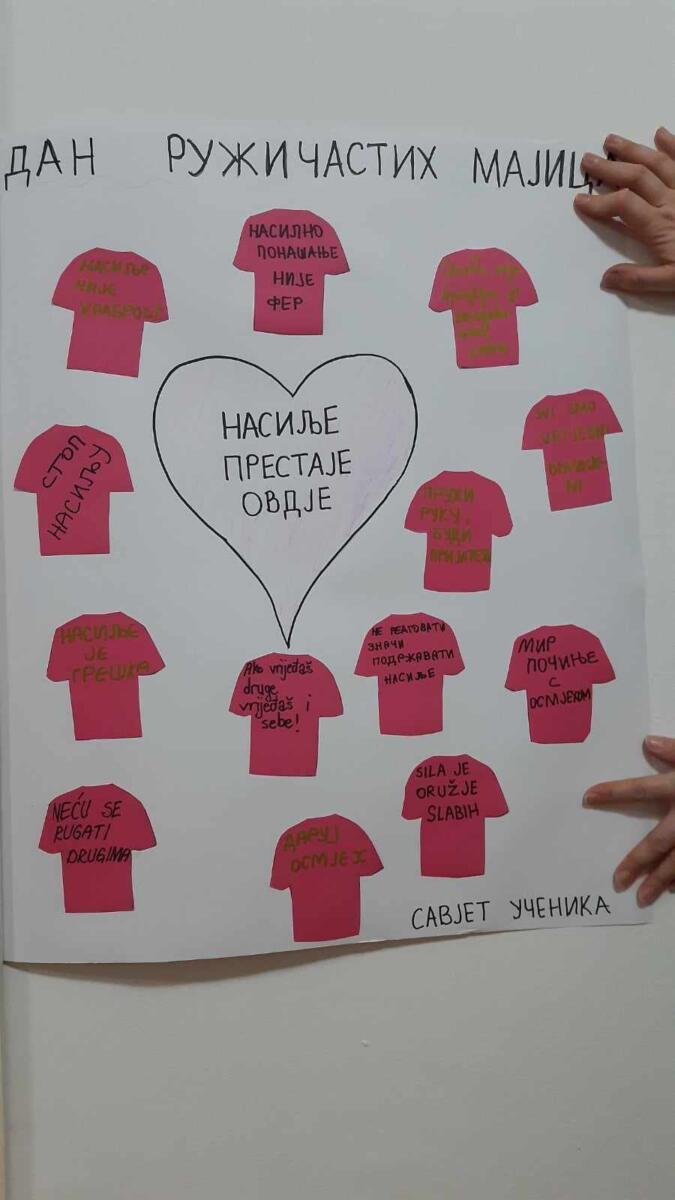 ДАН РУЖИЧАСТИХ МАЈИЦА
НАСИЛНО
ПОНАШАЊЕ
НИЈЕ
ФЕР
НАСИЉЕ
НИЈЕ
ХРАБРОСТ
НАСИЉЕ
ПРЕСТАЈЕ
ОВДЈЕ
СВИ СМО
СТОП
НАСИЉУ
ПРУЖИ
РУКУ,
БУДИ
ПРИЈАТЕЉ
НАСИЉЕ
ЈЕ
ГРЕШКА
Ako vrijeđaš
druge
vrijeđaš i
sebe!
НЕ РЕАГОВАТИ
ЗНАЧИ
ПОДРЖАВАТИ
НАСИЉЕ
МИР
ПОЧИЊЕ
С
ОСМЈЕХОМ
SILA JE
ORUŽJE
SLABIH
NEĆU SE
RUGATI
DRUGIMA
ДАРУЈ
ОСМЈЕХ
САВЈЕТ УЧЕНИКА